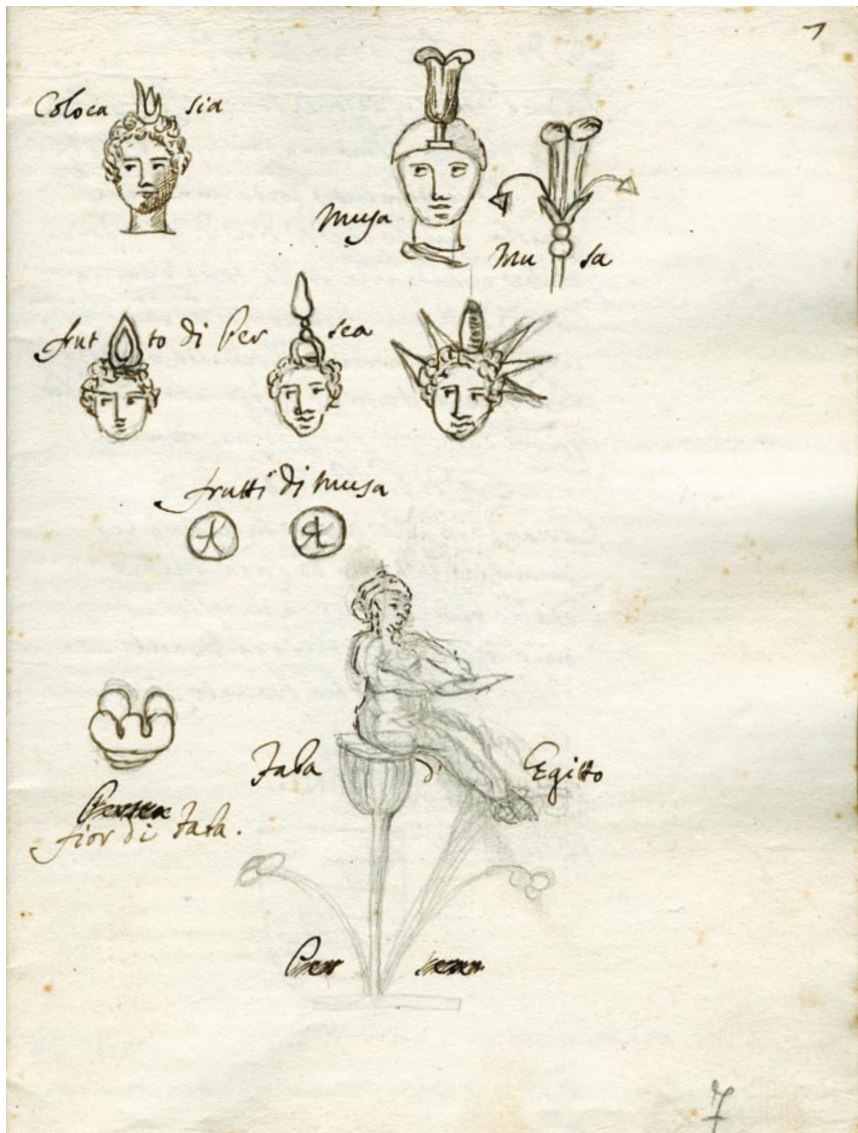 7
Colocasia
Musa
Musa
frutto di Persea
frutti di Musa
Faba d' Egitto
fior di Faba.
7